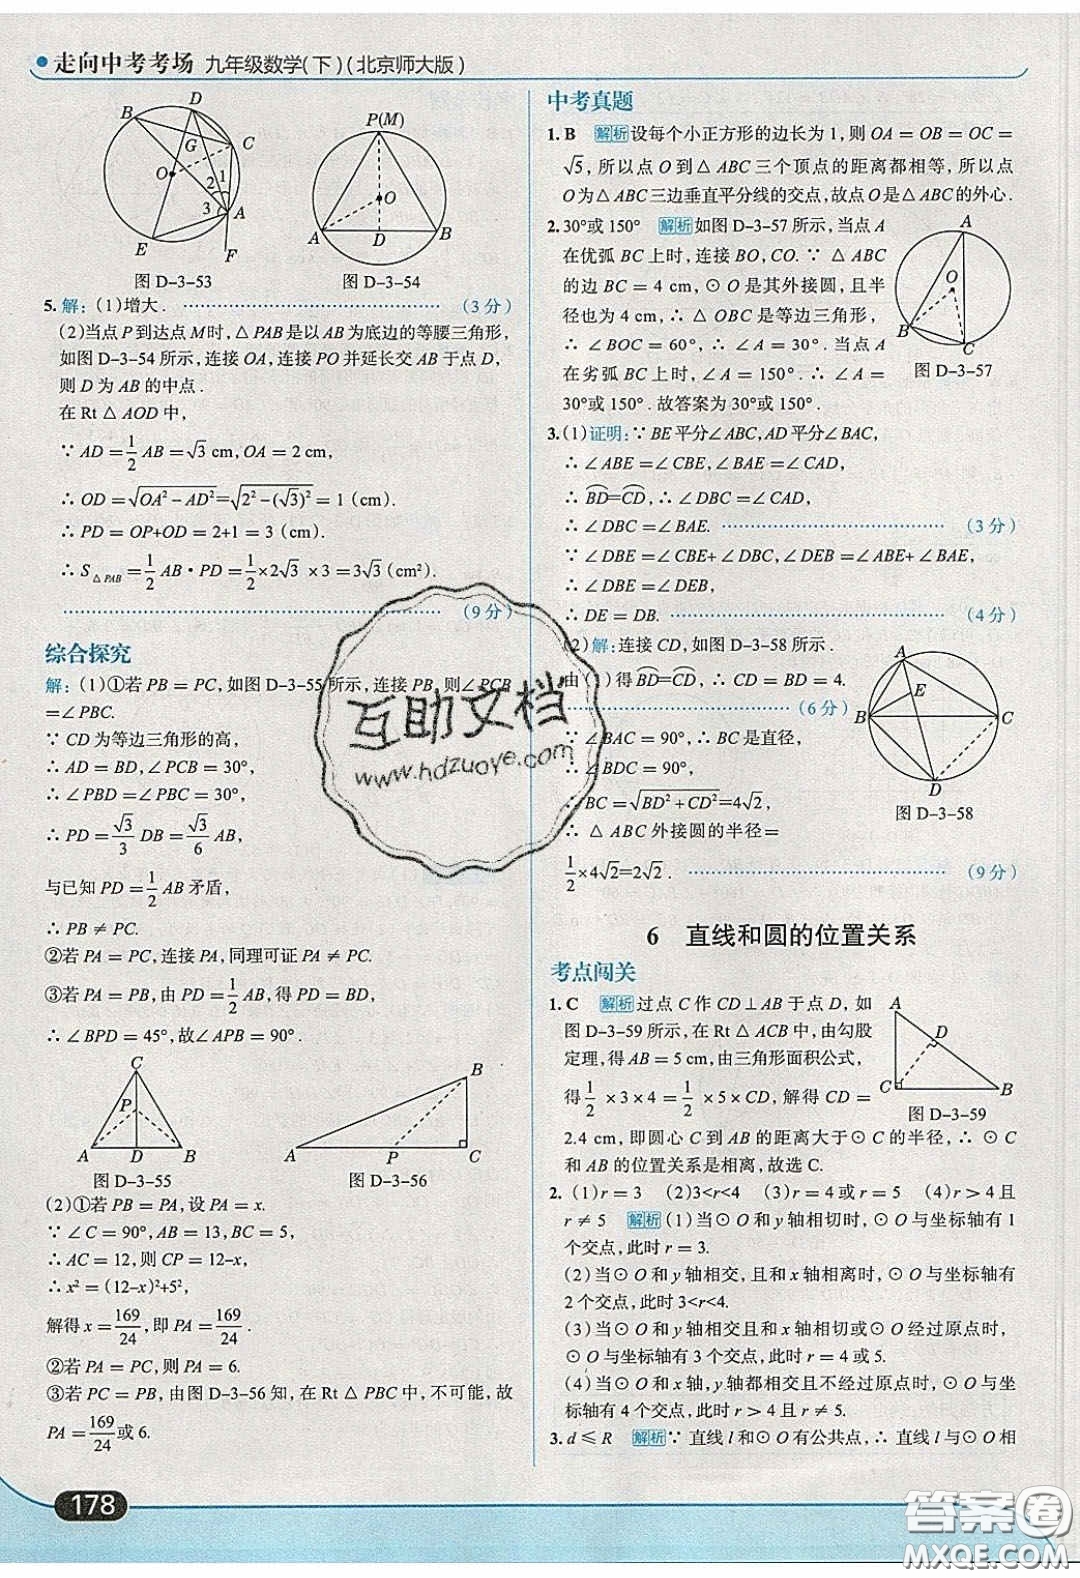 走向中考考场 九年级数学(下)(北京师大版)
B D C G O 2 1 3 A E F
图 D-3-53
P(M) O A D B
图 D-3-54
5. 解：(1)增大. (3分)
(2)当点 P 到达点 M 时，△PAB 是以 AB 为底边的等腰三角形，
如图 D-3-54 所示，连接 OA，连接 PO 并延长交 AB 于点 D，
则 D 为 AB 的中点.
在 Rt △ AOD 中，
∵ AD=1/2 AB=√3 cm, OA=2 cm,
∴ OD=√(OA²-AD²)=√(2²-(√3)²)=1 (cm).
∴ PD=OP+OD=2+1=3 (cm).
∴ S△PAB=1/2 AB·PD=1/2×2√3×3=3√3 (cm²).
(9分)
综合探究
解：(1)①若 PB=PC，如图 D-3-55 所示，连接 PB，则∠PCB
=∠PBC.
∵ CD 为等边三角形的高，
∴ AD=BD,∠PCB=30°,
∴ ∠PBD=∠PBC=30°,
∴ PD=√3/3 DB=√3/6 AB,
与已知 PD=1/2 AB 矛盾，
∴ PB≠PC.
②若 PA=PC，连接 PA，同理可证 PA≠PC.
③若 PA=PB，由 PD=1/2 AB，得 PD=BD,
∴ ∠BPD=45°，故∠APB=90°.
C P A D B
图 D-3-55
B A P C
图 D-3-56
(2)①若 PB=PA，设 PA=x.
∵ ∠C=90°, AB=13, BC=5,
∴ AC=12，则 CP=12-x,
∴ x²=(12-x)²+5²,
解得 x=169/24，即 PA=169/24.
②若 PA=PC，则 PA=6.
③若 PC=PB，由图 D-3-56 知，在 Rt △ PBC 中，不可能，故
PA=169/24或 6.
178
中考真题
1. B 解析 设每个小正方形的边长为 1，则 OA=OB=OC=
√5，所以点 O 到△ABC 三个顶点的距离都相等，所以点
O 为△ABC 三边垂直平分线的交点，故点 O 是△ABC 的外心.
2. 30°或 150° 解析 如图 D-3-57 所示，当点 A
在优弧 BC 上时，连接 BO, CO. ∵ △ABC
的边 BC=4 cm，⊙O 是其外接圆，且半
径也为 4 cm，∴ △OBC 是等边三角形，
∴ ∠BOC=60°，∴ ∠A=30°. 当点 A
在劣弧 BC 上时，∠A=150°. ∴ ∠A=
30°或 150°. 故答案为 30°或 150°.
A O B C
图 D-3-57
3. (1)证明：∵ BE 平分∠ABC, AD 平分∠BAC,
∴ ∠ABE=∠CBE, ∠BAE=∠CAD,
∴ B͡D=C͡D, ∴ ∠DBC=∠CAD,
∴ ∠DBC=∠BAE. (3分)
∵ ∠DBE=∠CBE+∠DBC, ∠DEB=∠ABE+∠BAE,
∴ ∠DBE=∠DEB,
∴ DE=DB. (4分)
(2)解：连接 CD，如图 D-3-58 所示.
由(1)得B͡D=C͡D, ∴ CD=BD=4.
(6分)
∵ ∠BAC=90°, ∴ BC 是直径，
∴ ∠BDC=90°,
∴ BC=√(BD²+CD²)=4√2,
∴ △ABC 外接圆的半径=
1/2×4√2=2√2. (9分)
A E B C D
图 D-3-58
6 直线和圆的位置关系
考点闯关
1. C 解析 过点 C 作 CD⊥AB 于点 D，如
图 D-3-59 所示，在 Rt △ ACB 中，由勾股
定理，得 AB=5 cm，由三角形面积公式，
得1/2×3×4=1/2×5×CD，解得 CD=
2.4 cm，即圆心 C 到 AB 的距离大于⊙C 的半径，∴ ⊙C
和 AB 的位置关系是相离，故选 C.
A D C B
图 D-3-59
2. (1)r=3 (2)3<r<4 (3)r=4 或 r=5 (4)r>4 且
r≠5 解析 (1)当⊙O 和 y 轴相切时，⊙O 与坐标轴有 1
个交点，此时 r=3.
(2)当⊙O 和 y 轴相交，且和 x 轴相离时，⊙O 与坐标轴有
2 个交点，此时 3<r<4.
(3)当⊙O 和 y 轴相交且和 x 轴相切或⊙O 经过原点时，
⊙O 与坐标轴有 3 个交点，此时 r=4 或 5.
(4)当⊙O 和 x 轴，y 轴都相交且不经过原点时，⊙O 与坐
标轴有 4 个交点，此时 r>4 且 r≠5.
3. d≤R 解析 ∵ 直线 l 和⊙O 有公共点，∴ 直线 l 与⊙O 相
互助文档
www.hdzuoye.com
答案圈
MXQE.COM